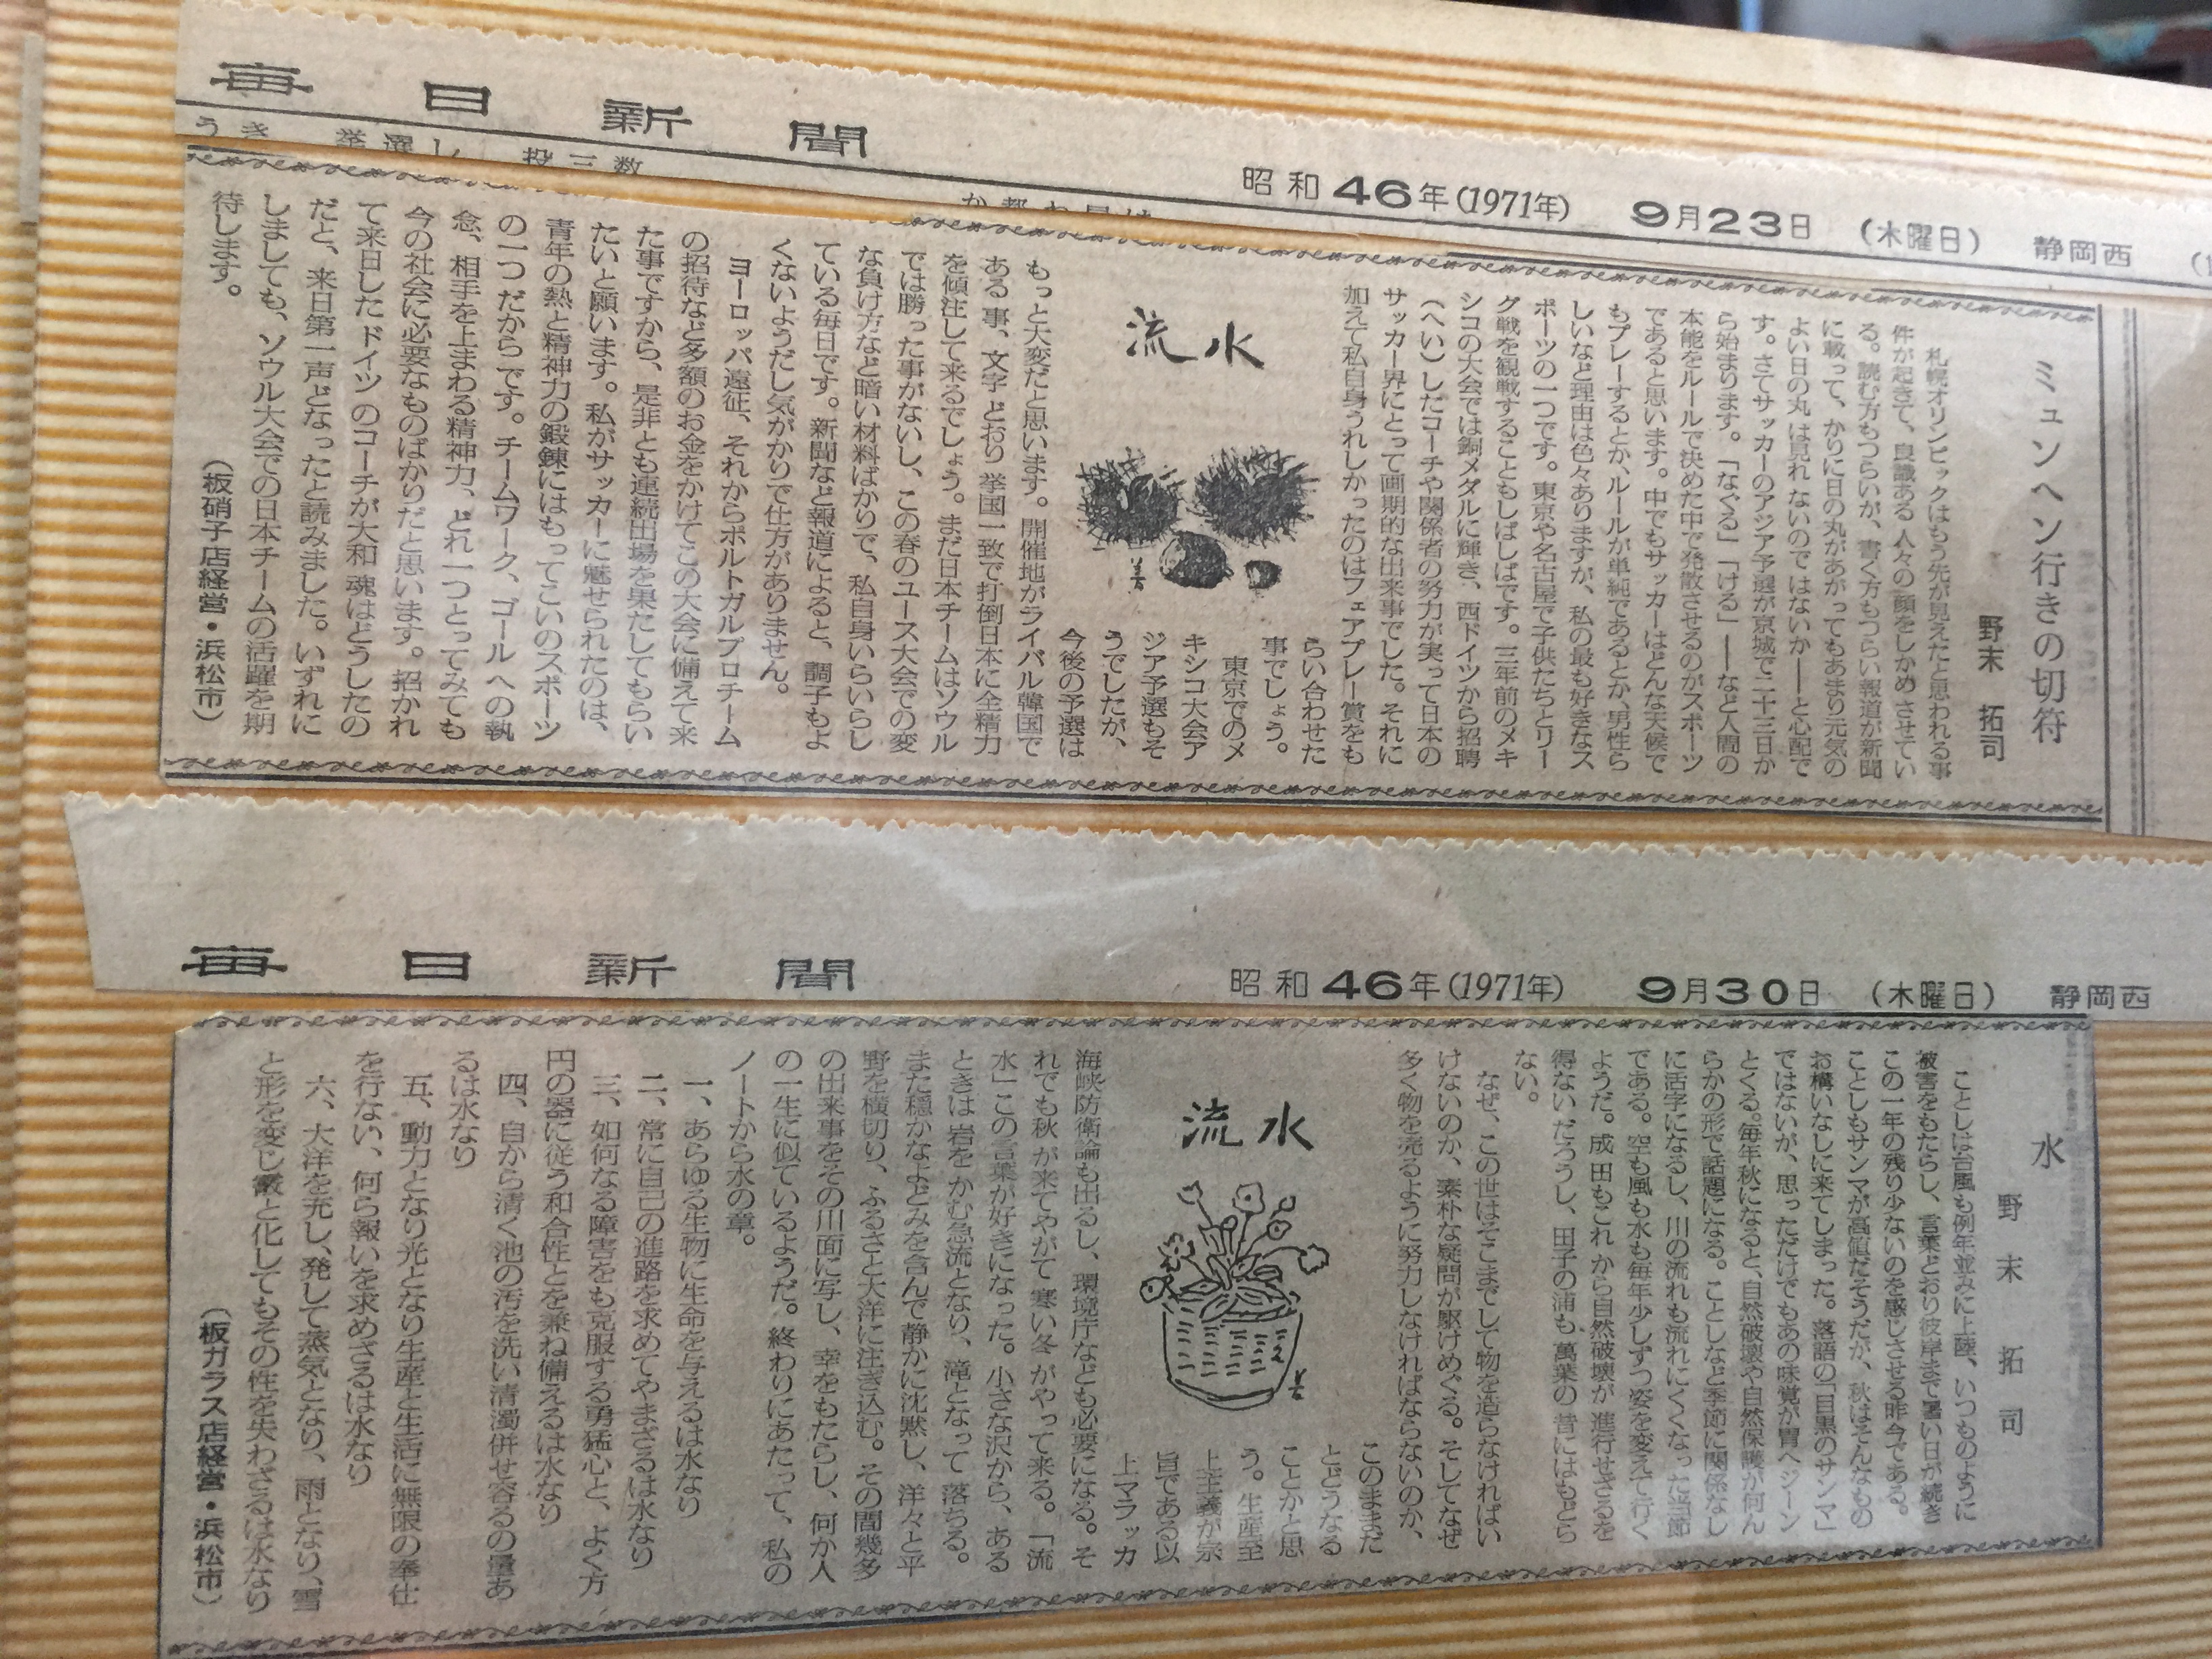 毎日新聞
昭和46年(1971年) 9月23日 (木曜日) 静岡西
ミュンヘン行きの切符
野末 拓司
札幌オリンピックはもう先が見えたと思われる事
件が起きて、良識ある人々の顔をしかめさせてい
る。読む方もつらいが、書く方もつらい報道が新聞
に載って、かりに日の丸があがってもあまり元気の
よい日の丸は見れないのではないか――と心配で
す。さてサッカーのアジア予選が京城で二十三日か
ら始まります。「なぐる」「ける」――など人間の
本能をルールで決めた中で発散させるのがスポーツ
であると思います。中でもサッカーはどんな天候で
もプレーするとか、ルールが単純であるとか、男性ら
しいなど理由は色々ありますが、私の最も好きなス
ポーツの一つです。東京や名古屋で子供たちとリー
グ戦を観戦することもしばしばです。三年前のメキ
シコの大会では銅メダルに輝き、西ドイツから招聘
(へい)したコーチや関係者の努力が実って日本の
サッカー界にとって画期的な出来事でした。それに
加えて私自身うれしかったのはフェアプレー賞をも
らい合わせた
事でしょう。
東京でのメ
キシコ大会ア
ジア予選もそ
うでしたが、
今後の予選は
もっと大変だと思います。開催地がライバル韓国で
ある事、文字どおり挙国一致で打倒日本に全精力
を傾注して来るでしょう。まだ日本チームはソウル
では勝った事がないし、この春のユース大会での変
な負け方など暗い材料ばかりで、私自身いらいらし
ている毎日です。新聞など報道によると、調子もよ
くないようだし気がかりで仕方がありません。
ヨーロッパ遠征、それからポルトガルプロチーム
の招待など多額のお金をかけてこの大会に備えて来
た事ですから、是非とも連続出場を果たしてもらい
たいと願います。私がサッカーに魅せられたのは、
青年の熱と精神力の鍛錬にはもってこいのスポーツ
の一つだからです。チームワーク、ゴールへの執
念、相手を上まわる精神力、どれ一つとってみても
今の社会に必要なものばかりだと思います。招かれ
て来日したドイツのコーチが大和魂はどうしたの
だと、来日第一声となったと読みました。いずれに
しましても、ソウル大会での日本チームの活躍を期
待します。
(板硝子店経営・浜松市)
流水
毎日新聞
昭和46年(1971年) 9月30日 (木曜日) 静岡西
水
野末 拓司
ことしは台風も例年並みに上陸、いつものように
被害をもたらし、言葉どおり彼岸まで暑い日が続き
この一年の残り少ないのを感じさせる昨今である。
ことしもサンマが高値だそうだが、秋はそんなもの
お構いなしに来てしまった。落語の「目黒のサンマ」
ではないが、思っただけでもあの味覚が胃へジーン
とくる。毎年秋になると、自然破壊や自然保護が何ん
らかの形で話題になる。ことしなど季節に関係なし
に活字になるし、川の流れも流れにくくなった当節
である。空も風も水も毎年少しずつ姿を変えて行く
ようだ。成田もこれから自然破壊が進行せざるを
得ないだろうし、田子の浦も萬葉の昔にはもどら
ない。
なぜ、この世はそこまでして物を造らなければい
けないのか、素朴な疑問が駆けめぐる。そしてなぜ
多く物を売るように努力しなければならないのか、
このままだ
とどうなる
ことかと思
う。生産至
上主義が宗
旨である以
上マラッカ
海峡防衛論も出るし、環境庁なども必要になる。そ
れでも秋が来てやがて寒い冬がやって来る。「流
水」この言葉が好きになった。小さな沢から、ある
ときは岩をかむ急流となり、滝となって落ちる。
また穏かなよどみを含んで静かに沈黙し、洋々と平
野を横切り、ふるさと大洋に注ぎ込む。その間幾多
の出来事をその川面に写し、幸をもたらし、何か人
の一生に似ているようだ。終わりにあたって、私の
ノートから水の章。
一、あらゆる生物に生命を与えるは水なり
二、常に自己の進路を求めてやまざるは水なり
三、如何なる障害をも克服する勇猛心と、よく方
円の器に従う和合性とを兼ね備えるは水なり
四、自から清く池の汚を洗い清濁併せ容るの量あ
るは水なり
五、動力となり光となり生産と生活に無限の奉仕
を行ない、何ら報いを求めざるは水なり
六、大洋を充し、発して蒸気となり、雨となり、雪
と形を変じ霰と化してもその性を失わざるは水なり
(板ガラス店経営・浜松市)
流水